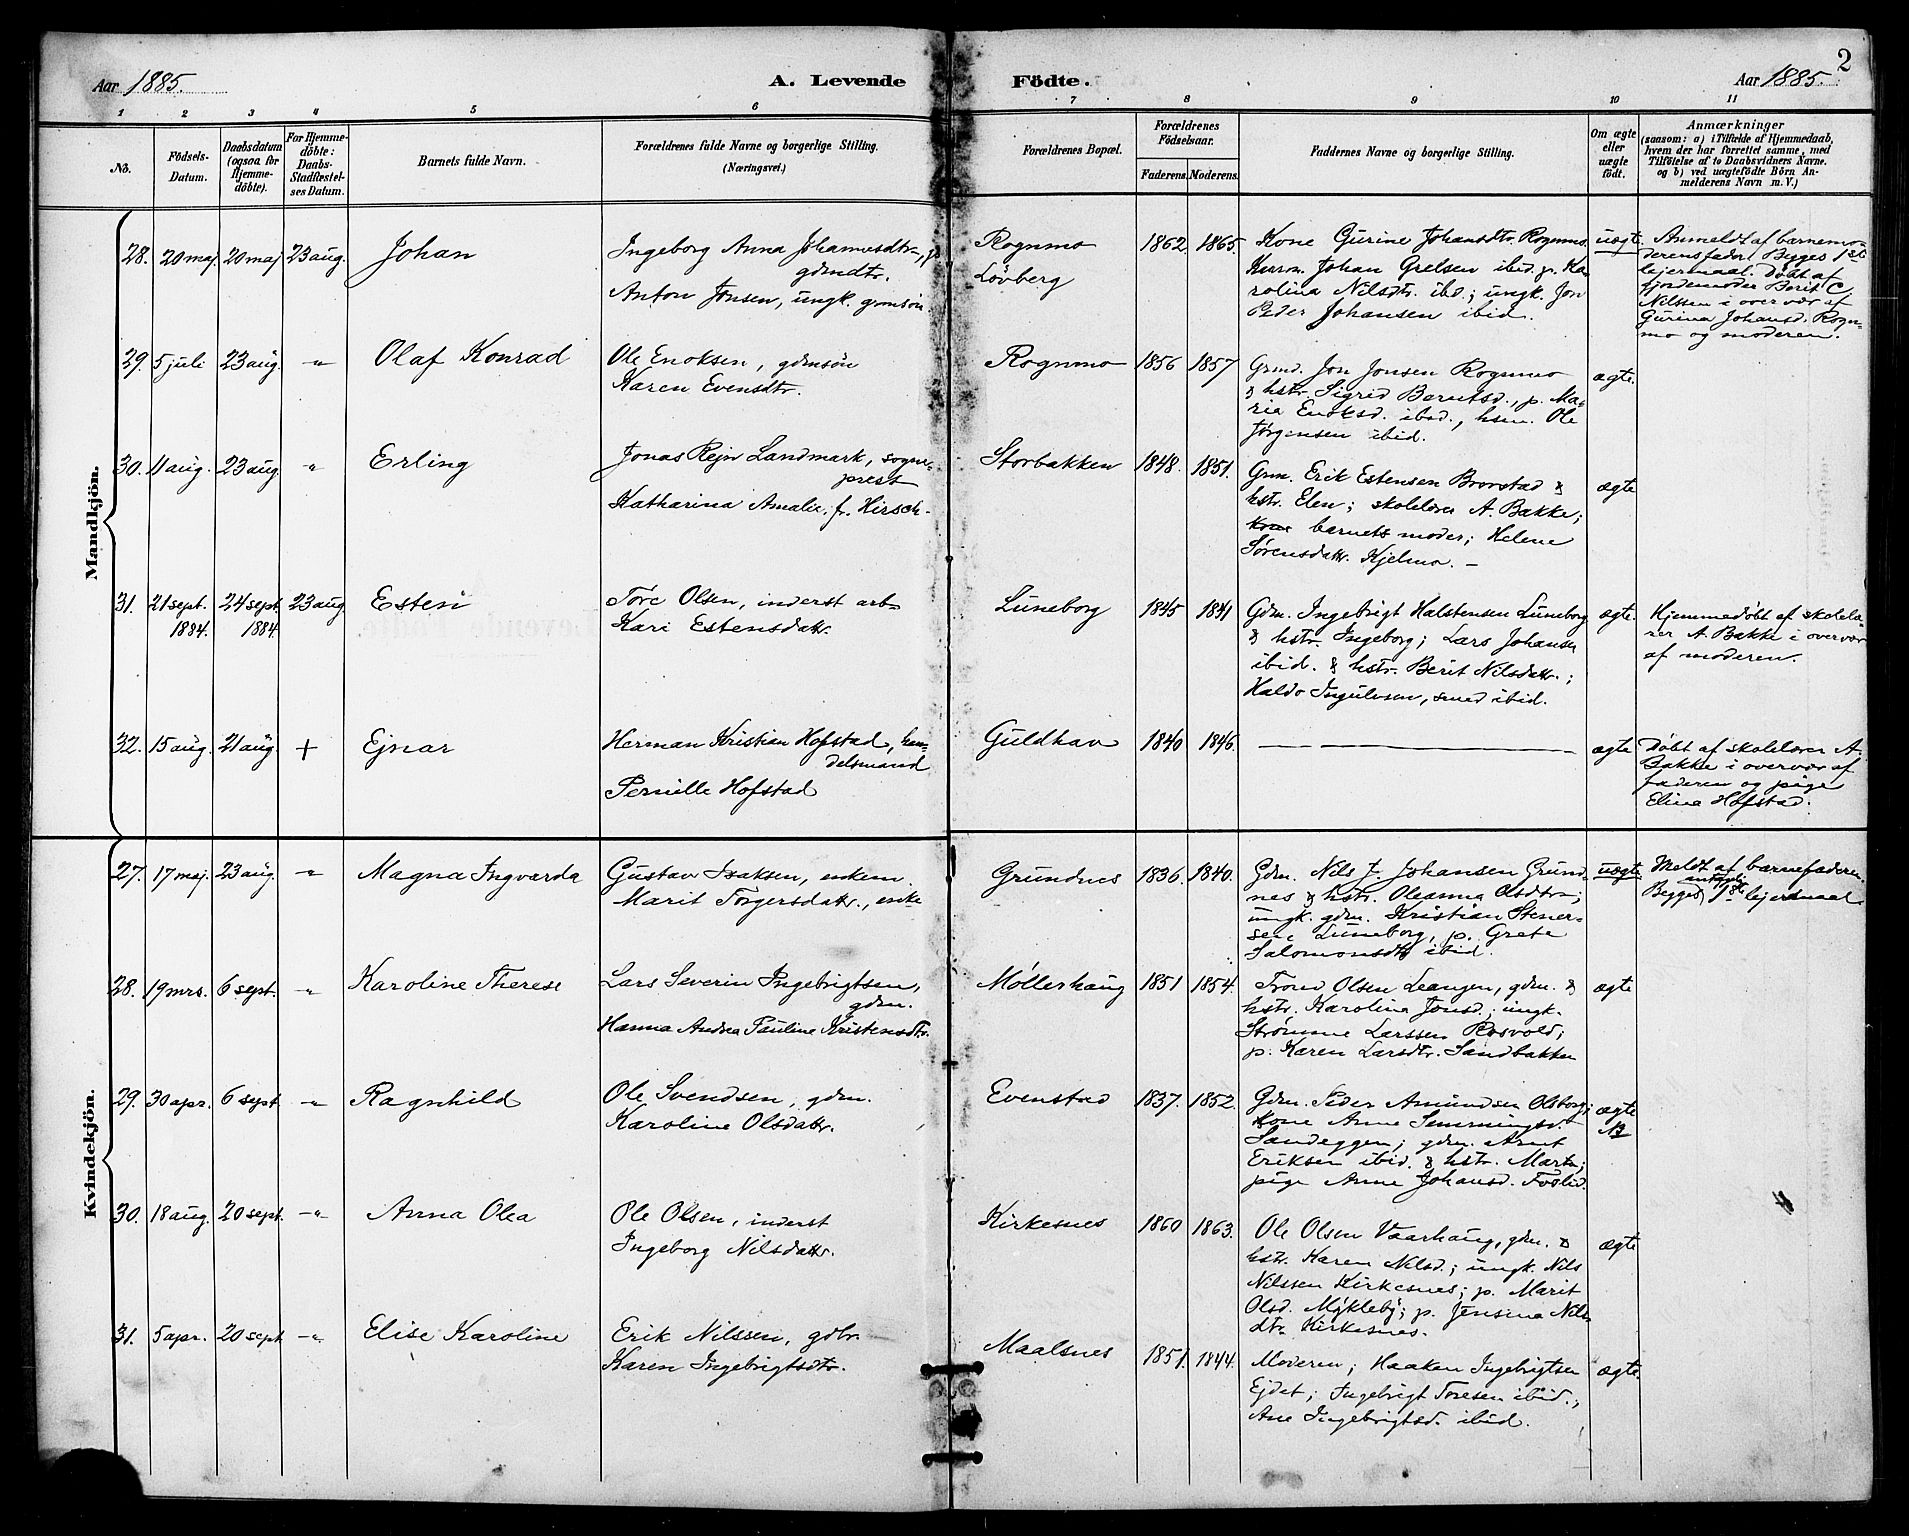 2
Aar 1885.
A. Levende Födte.
Aar 1885.
1 2 3 4 5 6 7 8 9 10 11
No.
Födsels-
Datum.
Daabsdatum
(ogsaa for
Hjemme-
döbte).
For Hjemme-
döbte:
Daabs-
Stadfæstel-
ses Datum.
Barnets fulde Navn.
Forældrenes fulde Navne og borgerlige Stilling.
(Næringsvei.)
Forældrenes Bopæl.
Forældrenes
Födselsaar.
Faderens. Moderens.
Faddernes Navne og borgerlige Stilling.
Om ægte
eller
uægte
födt.
Anmærkninger
(saasom: a) i Tilfælde af Hjemmedaab,
hvem der har forrettet samme, med
Tilföielse af to Daabsvidners Navne.
og b) ved uægtefödte Börn An-
melderens Navn m. V.)
Mandkjön.
28. 20 maj 20 maj 23 aug. Johan
Ingeborg Anna Johannesdtr., p.
gdmdtr.
Anton Jonsen, ungk. gmsön.
Rognmo
Lövberg
1862. 1865.
Kone Gurine Johansdtr. Rognmo.
Johan Grelsen ibid. p. Ka-
rolina Nilsdtr. ibd; ungk. Jon
Peder Johansen ibid.
uægte.
Anmeldt af barnemo-
derens fader! Begges 1ste
lejermaal. Døbt af
jordemoder Berit C.
Nilssen i overvær af
Gurina Johansd. Rogn-
mo og moderen.
29. 5 juli 23 aug. -"- Olaf Konrad
Ole Enoksen, gdmsön
Karen Evensdtr.
Rognmo 1856 1857
Grmd. Jon Jonsen Rognmo
& hstr. Sigrid Berntsd., p. Ma-
ria Enoksd. ibid., hsm. Ole
Jørgensen ibid.
ægte.
30. 11 aug. 23 aug. " Erling
Jonas Rejn Landmark, sogne-
prest
Katharina Amalia, f. Hirsch.
Storbakken 1848. 1851.
Grm. Erik Estensen Brovstad &
hstr. Elen; skolelærer A. Bakke;
kone barnets moder; Helene
Sørensdatr. Kjelmo. –
ægte
31. 21 sept. 24 sept. 23 aug. Esten
1884. 1884.
Töre Olsen, inderst arb.
Kari Estensdatr.
Luneborg 1845 1841
Gdm. Ingebrigt Halstensen Luneborg
& hstr. Ingeborg; Lars Johansen
ibid. & hstr. Berit Nilsdatr.;
Haldo Ingulvsen, smed ibid.
ægte.
Hjemmedøbt af skolelæ-
rer A. Bakke i overvær
af moderen.
32. 15 aug. 21 aug. + Ejnar
Herman Kristian Hofstad, han-
delsmand
Pernille Hofstad
Guldhav 1840 1846. ———
ægte
Døbt af skolelærer A.
Bakke i overvær af
faderen og pige
Elina Hofstad.
Kvindekjön.
27. 17 maj. 23 aug. -"- Magna Ingvarda
Gustav Isaksen, enkem.
Marit Torgersdatr., enke
Grundnes 1836. 1840.
Gdm. Nils J. Johansen Grund-
nes & hstr. Oleanna Olsdtr;
ungk. gdm. Kristian Stener-
sen Luneborg, p. Grete
Salomonsdtr ibid.
uægte
Meldt af barnefaderen.
Begges antagelig 1ste lejermaal.
28. 19 mrs. 6 sept. -"- Karoline Therese
Lars Severin Ingebrigtsen,
gdm.
Hanna Andrea Pauline Kristensdtr.
Møllerhaug 1851 1854.
Trond Olsen Leangen, gdm. &
hstr. Karolina Jonsd.; ungk.
Strømme Larssen Rosvold;
p. Karen Larsdtr. Sandbakken
ægte
29. 30 apr. 6 sept -"- Ragnhild
Ole Svendsen, gdm.
Karoline Olsdatr.
Evenstad 1837. 1852.
Gdm. Peder Amundsen Olsborg;
kone Anne Semmingsd.
Sandeggen; gdm. Arnt
Eriksen ibid. & hstr. Marta;
pige Anne Johansd. Foslid.
ægte
30. 18 aug. 20 sept. -"- Anna Olea
Ole Olsen, inderst
Ingeborg Nilsdatr.
Kirkesnes 1860 1863.
Ole Olsen Vaarhaug, gdm. &
hstr. Karen Nilsd.; ungk. Nils
Nilssen Kirkesnes; p. Marit
Olsd. Mykleby; p. Jensina Nils-
dtr. Kirkesnes.
ægte
31. 5 apr. 20 sept. -"- Elise Karoline
Erik Nilssen, gdbr.
Karen Ingebrigtsdtr.
Maalsnes 1851. 1844.
Moderen; Haaken Ingebrigtsen
Ejdet; Ingebrigt Toresen ibid.,
Ane Ingebrigtsd. ibid.
ægte.